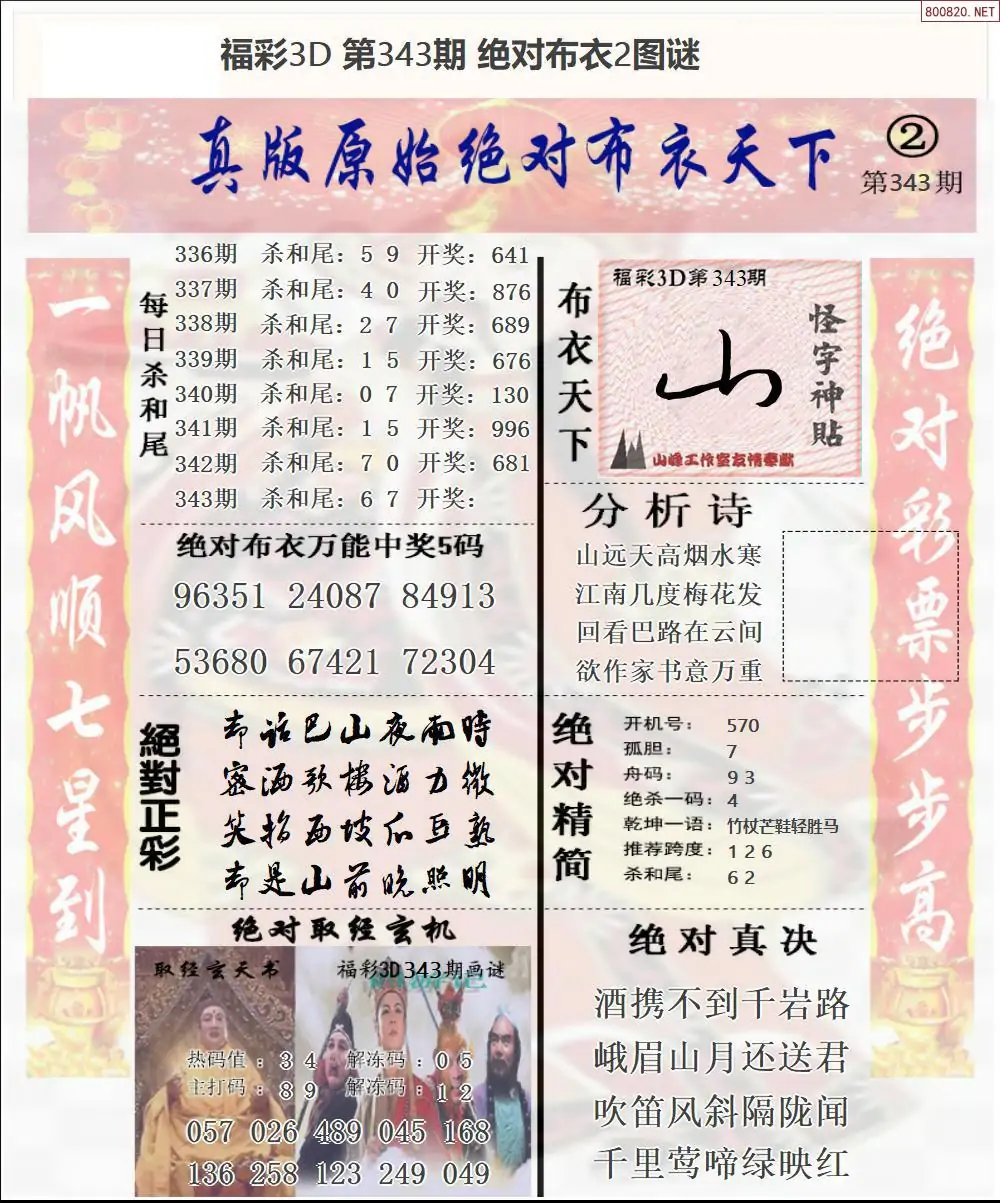 800820.NET
福彩3D 第343期 绝对布衣2图谜
真版原始绝对布衣天下
②
第343期
一帆风顺七星到
每日杀和尾
336期 杀和尾：5 9 开奖：641
337期 杀和尾：4 0 开奖：876
338期 杀和尾：2 7 开奖：689
339期 杀和尾：1 5 开奖：676
340期 杀和尾：0 7 开奖：130
341期 杀和尾：1 5 开奖：996
342期 杀和尾：7 0 开奖：681
343期 杀和尾：6 7 开奖：
绝对布衣万能中奖5码
96351 24087 84913
53680 67421 72304
絕對正彩
却话巴山夜雨時
密洒歌楼酒力微
笑指西坡瓜豆熟
却是山前晚照明
绝对取经玄机
取经玄天书
福彩3D343期画谜
热码值：3 4 解冻码：0 5
主打码：8 9 解冻码：1 2
057 026 489 045 168
136 258 123 249 049
布衣天下
福彩3D第343期
山
怪字神貼
山峰工作室友情奉献
分析诗
山远天高烟水寒
江南几度梅花发
回看巴路在云间
欲作家书意万重
绝对精简
开机号：570
孤胆：7
舟码：9 3
绝杀一码：4
乾坤一语：竹杖芒鞋轻胜马
推荐跨度：1 2 6
杀和尾：6 2
绝对真决
酒携不到千岩路
峨眉山月还送君
吹笛风斜隔陇闻
千里莺啼绿映红
绝对彩票步步高